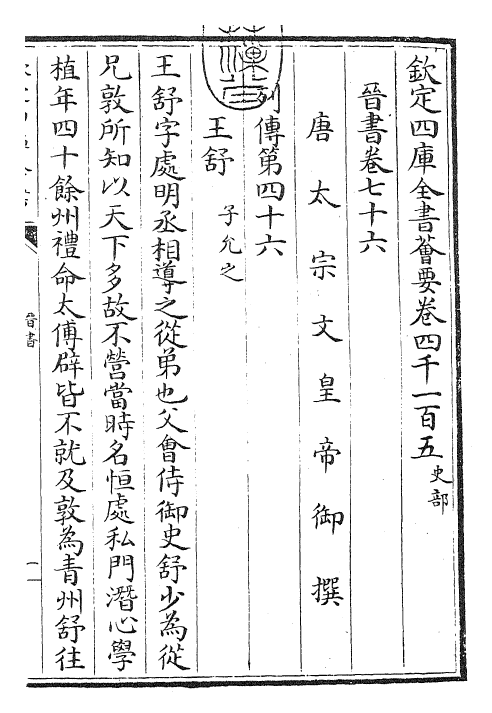 欽定四庫全書薈要卷四千一百五史部
晉書卷七十六
唐太宗文皇帝御撰
列傳第四十六
王舒子允之
王舒字處明丞相導之從弟也父會侍御史舒少為從
兄敦所知以天下多故不營當時名恒處私門潛心學
植年四十餘州禮命太傅辟皆不就及敦為青州舒往
晉書
一